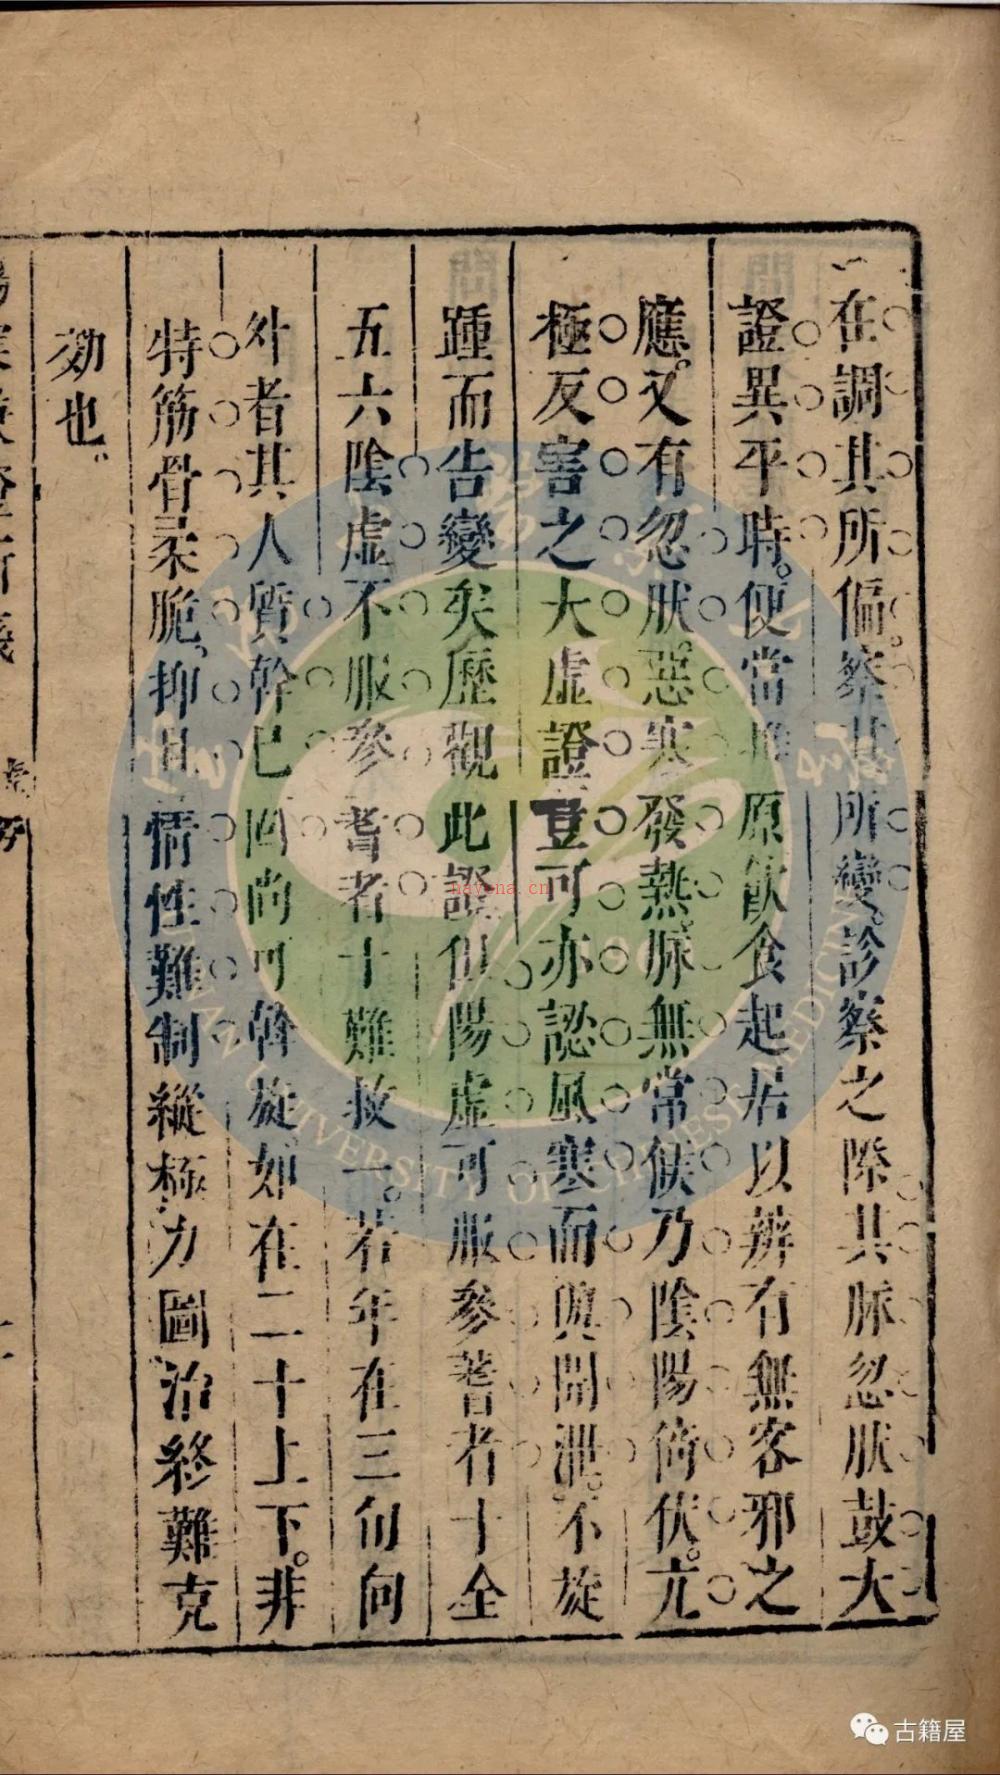 在調其所偏。察其所變。診察之際其脉忽肰鼓大
證異平時。便當推原飲食起居以辨有無客邪之
應。又有忽肰。惡寒發熱。脉無常候乃陰陽倚伏。亢
極反害之大虛證豈可亦認風寒而與開泄。不旋
踵而告變矣歷觀此證但陽虛可服參耆者十全
五六陰虛不服參耆者十難救一。若年在三旬向
外者其人質幹已固尚可斡旋如在二十上下。非
特筋骨柔脆。抑且情性難制縱極力圖治終難克
効也。
hayona.cn
UNIVERSITY OF CHINESE MEDICINE
古籍屋